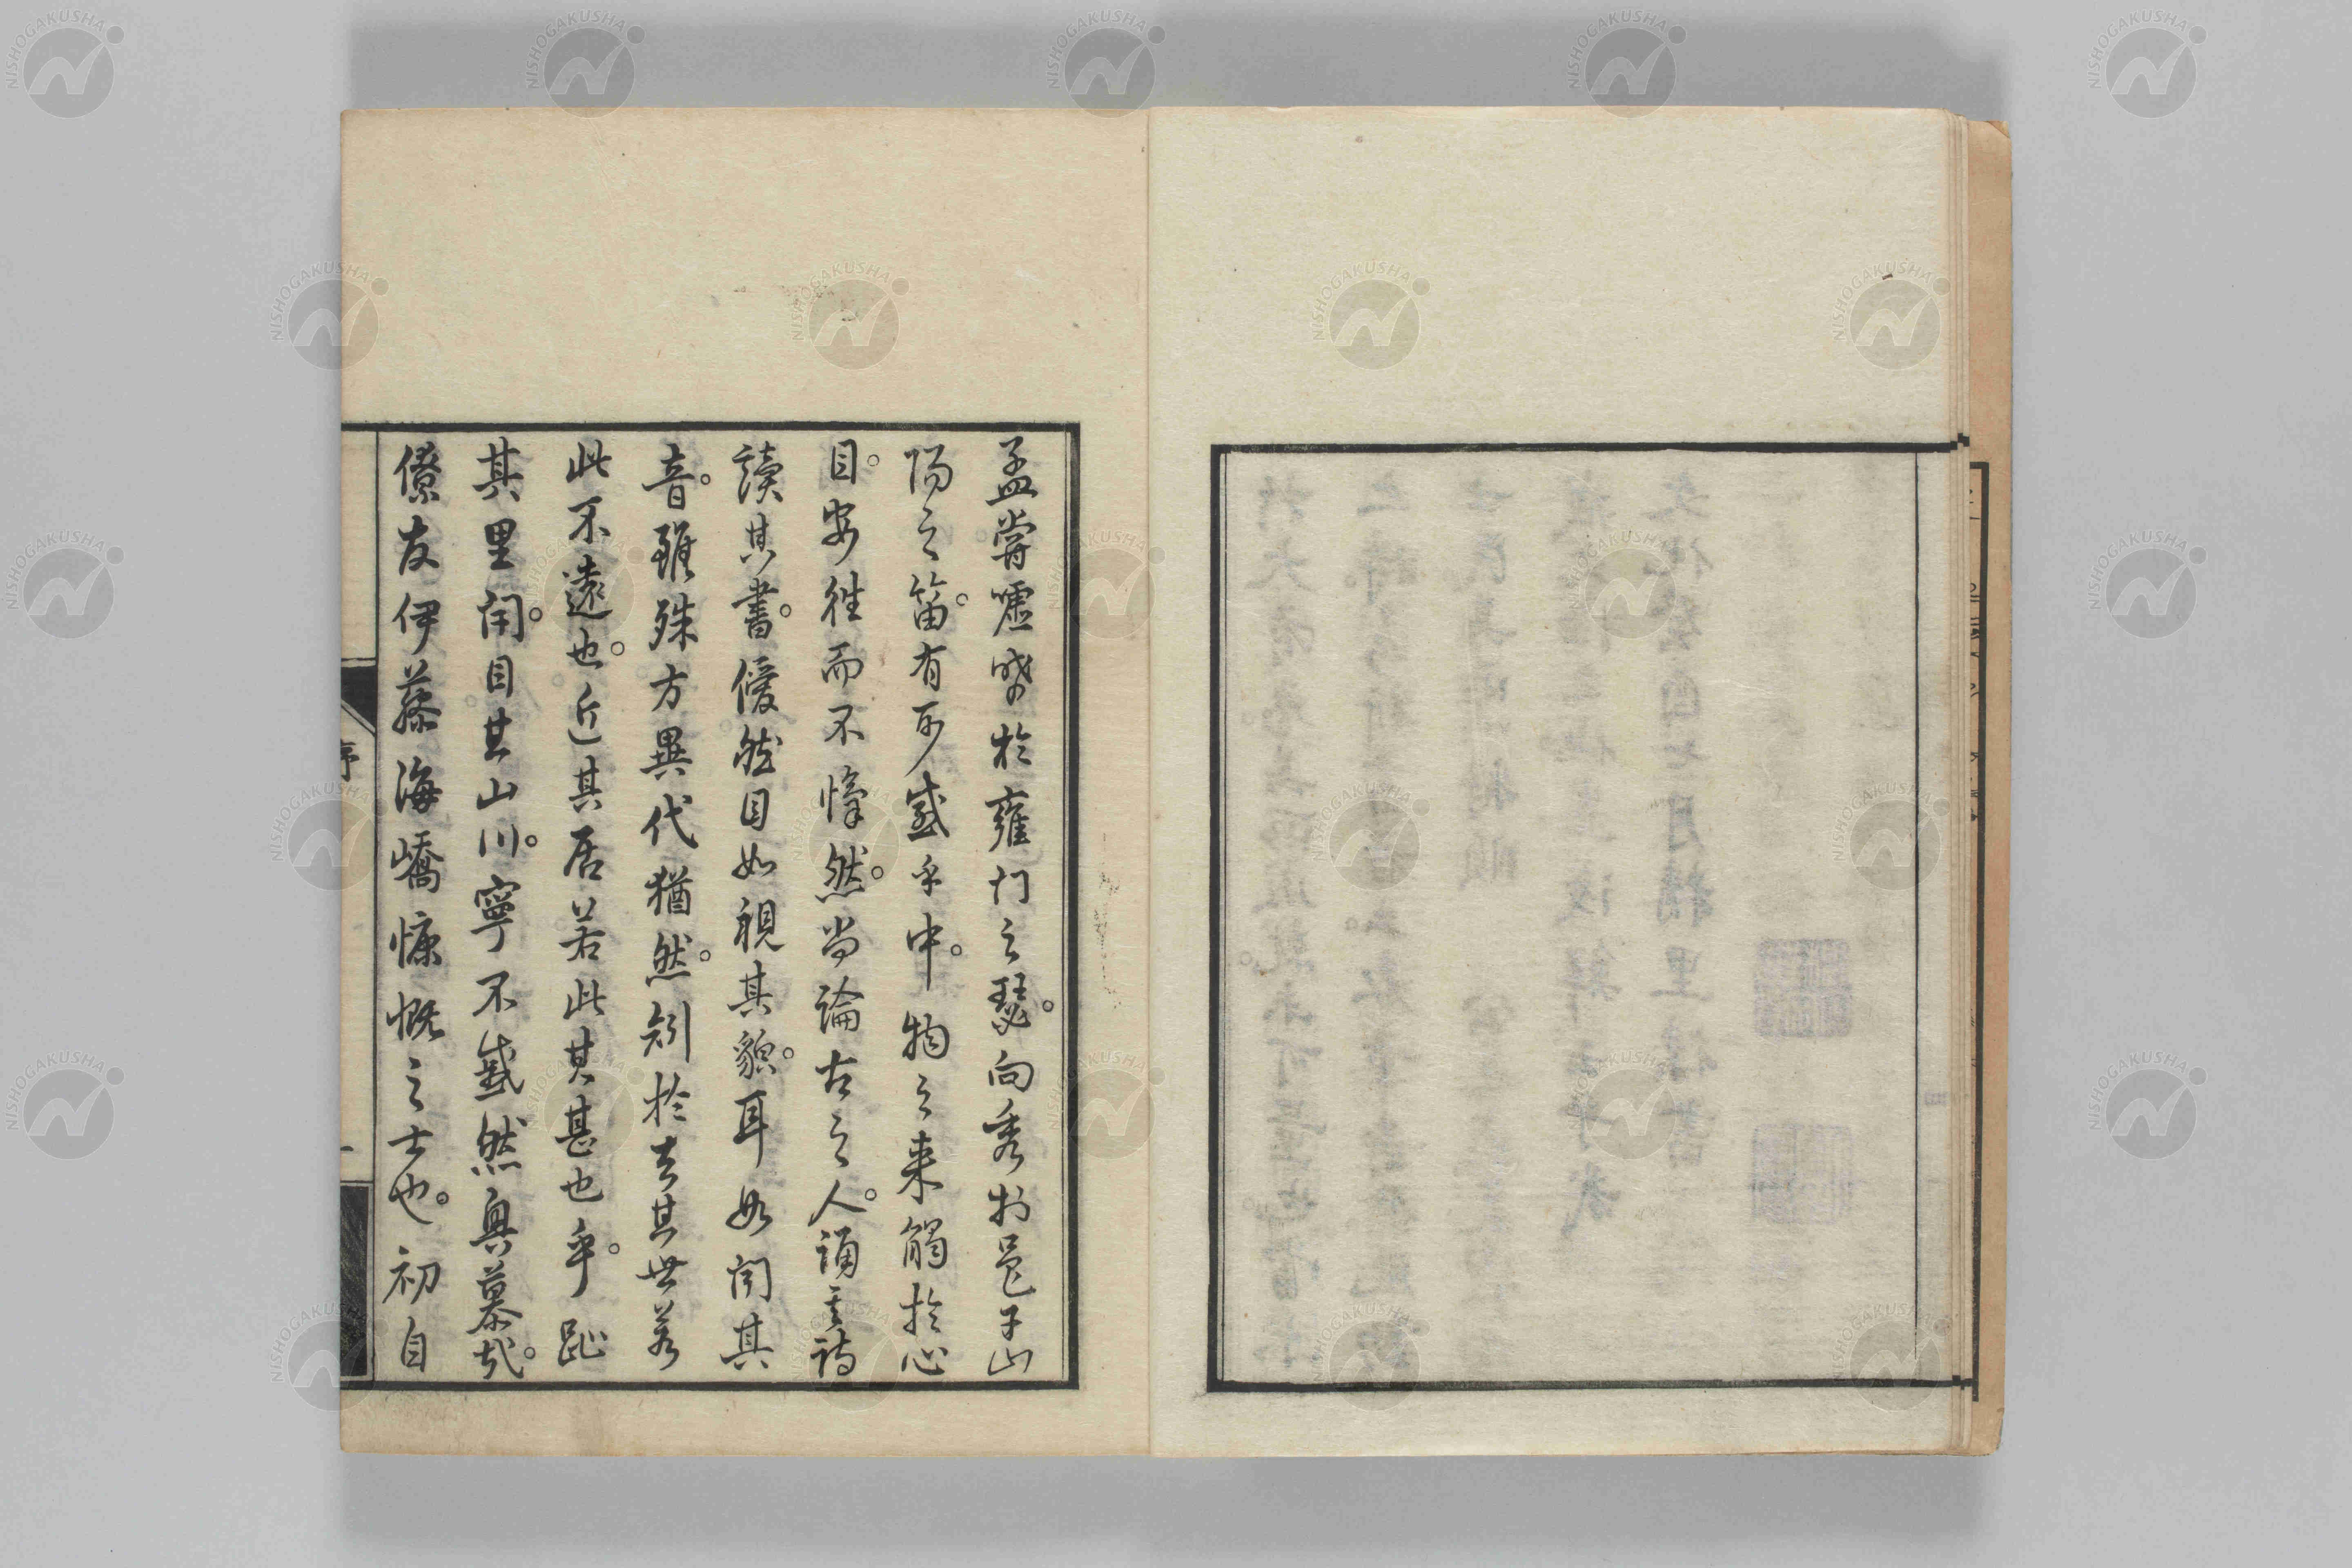 孟嘗噓唏於雍门之瑟。向秀於邑乎山
陽之笛。有所感乎中。物之来觸於心
目。安往而不愴然。尚論古之人。誦其詩
讀其書。僾然目如視其貌。耳如聞其
音。雖殊方異代猶然。矧於去其世若
此不遠也。近其居若此其甚也乎。踵
其里閈。目其山川。寧不感然興慕哉。
僚友伊藤海嶠慷慨之士也。初自
序
NISHOGAKUSHA